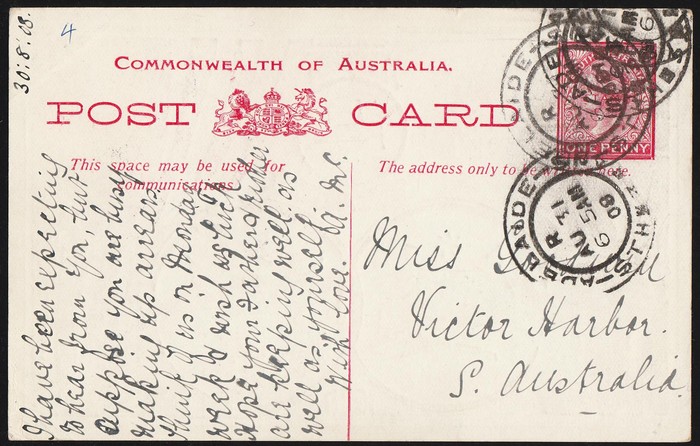 30:8:08.
4
COMMONWEALTH OF AUSTRALIA.
POST CARD
This space may be used for
communications.
The address only to be written here.
ONE PENNY
ADELAIDE
R
AU 31
6 5AM
08
STH AUST
I have been expecting
to hear from you, but
suppose you are busy
making up arrears
think of us on Monday
week & wish us luck
Hope your Father & Mother
are keeping well as
well as yourself
With love. A. Mc.
Miss
Victor Harbor.
S. Australia.